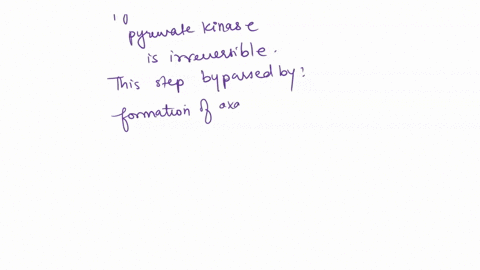 pyruvate kinase
is irreversible.
This step bypassed by:
formation of oxa